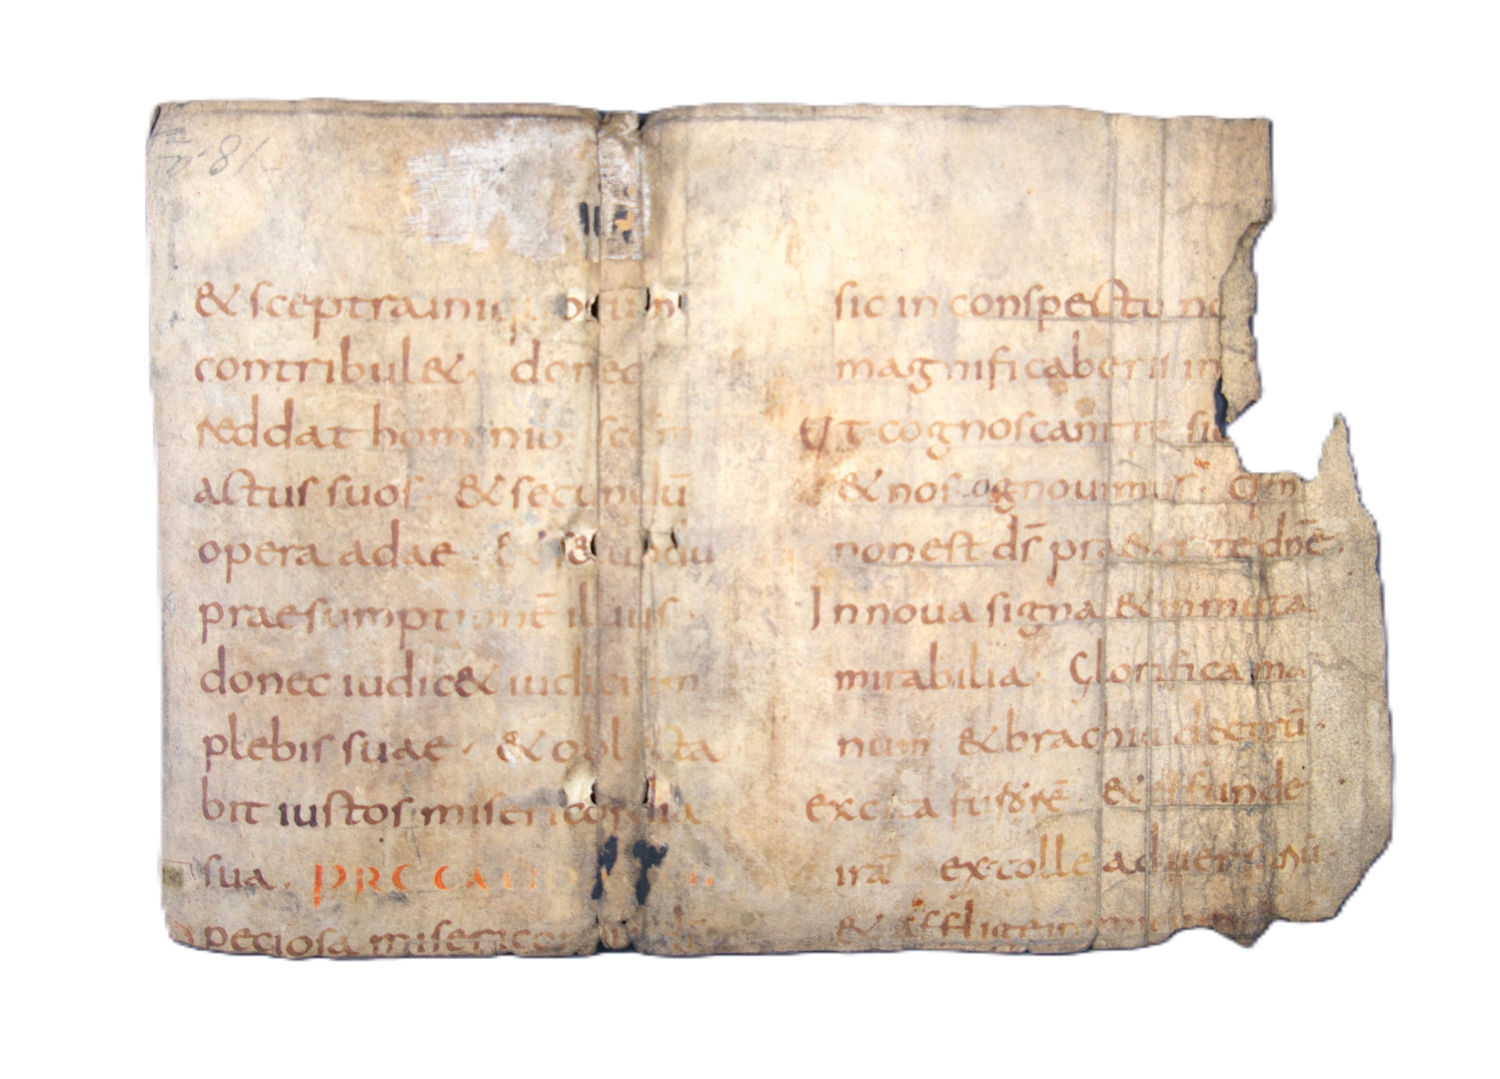 n. 81
& sceptra iniquorum
contribul&. donec
reddat hominib;
actus suos. & secundū
opera adae. & secundū
praesumptionē illius.
donec iudic& iudicium
plebis suae. & oblecta
bit iustos misericordia
sua. PRECATIO
speciosa miserico
sic in conspectu no
magnificaberis in
Et cognoscant te sic
& nos cognouimus. qm
non est ds praeter te dne.
Innoua signa & inmuta
mirabilia. Glorifica ma
num & brachiū dextrū.
excita furorē & effunde
irā extolle aduersariū
& afflige inimicum